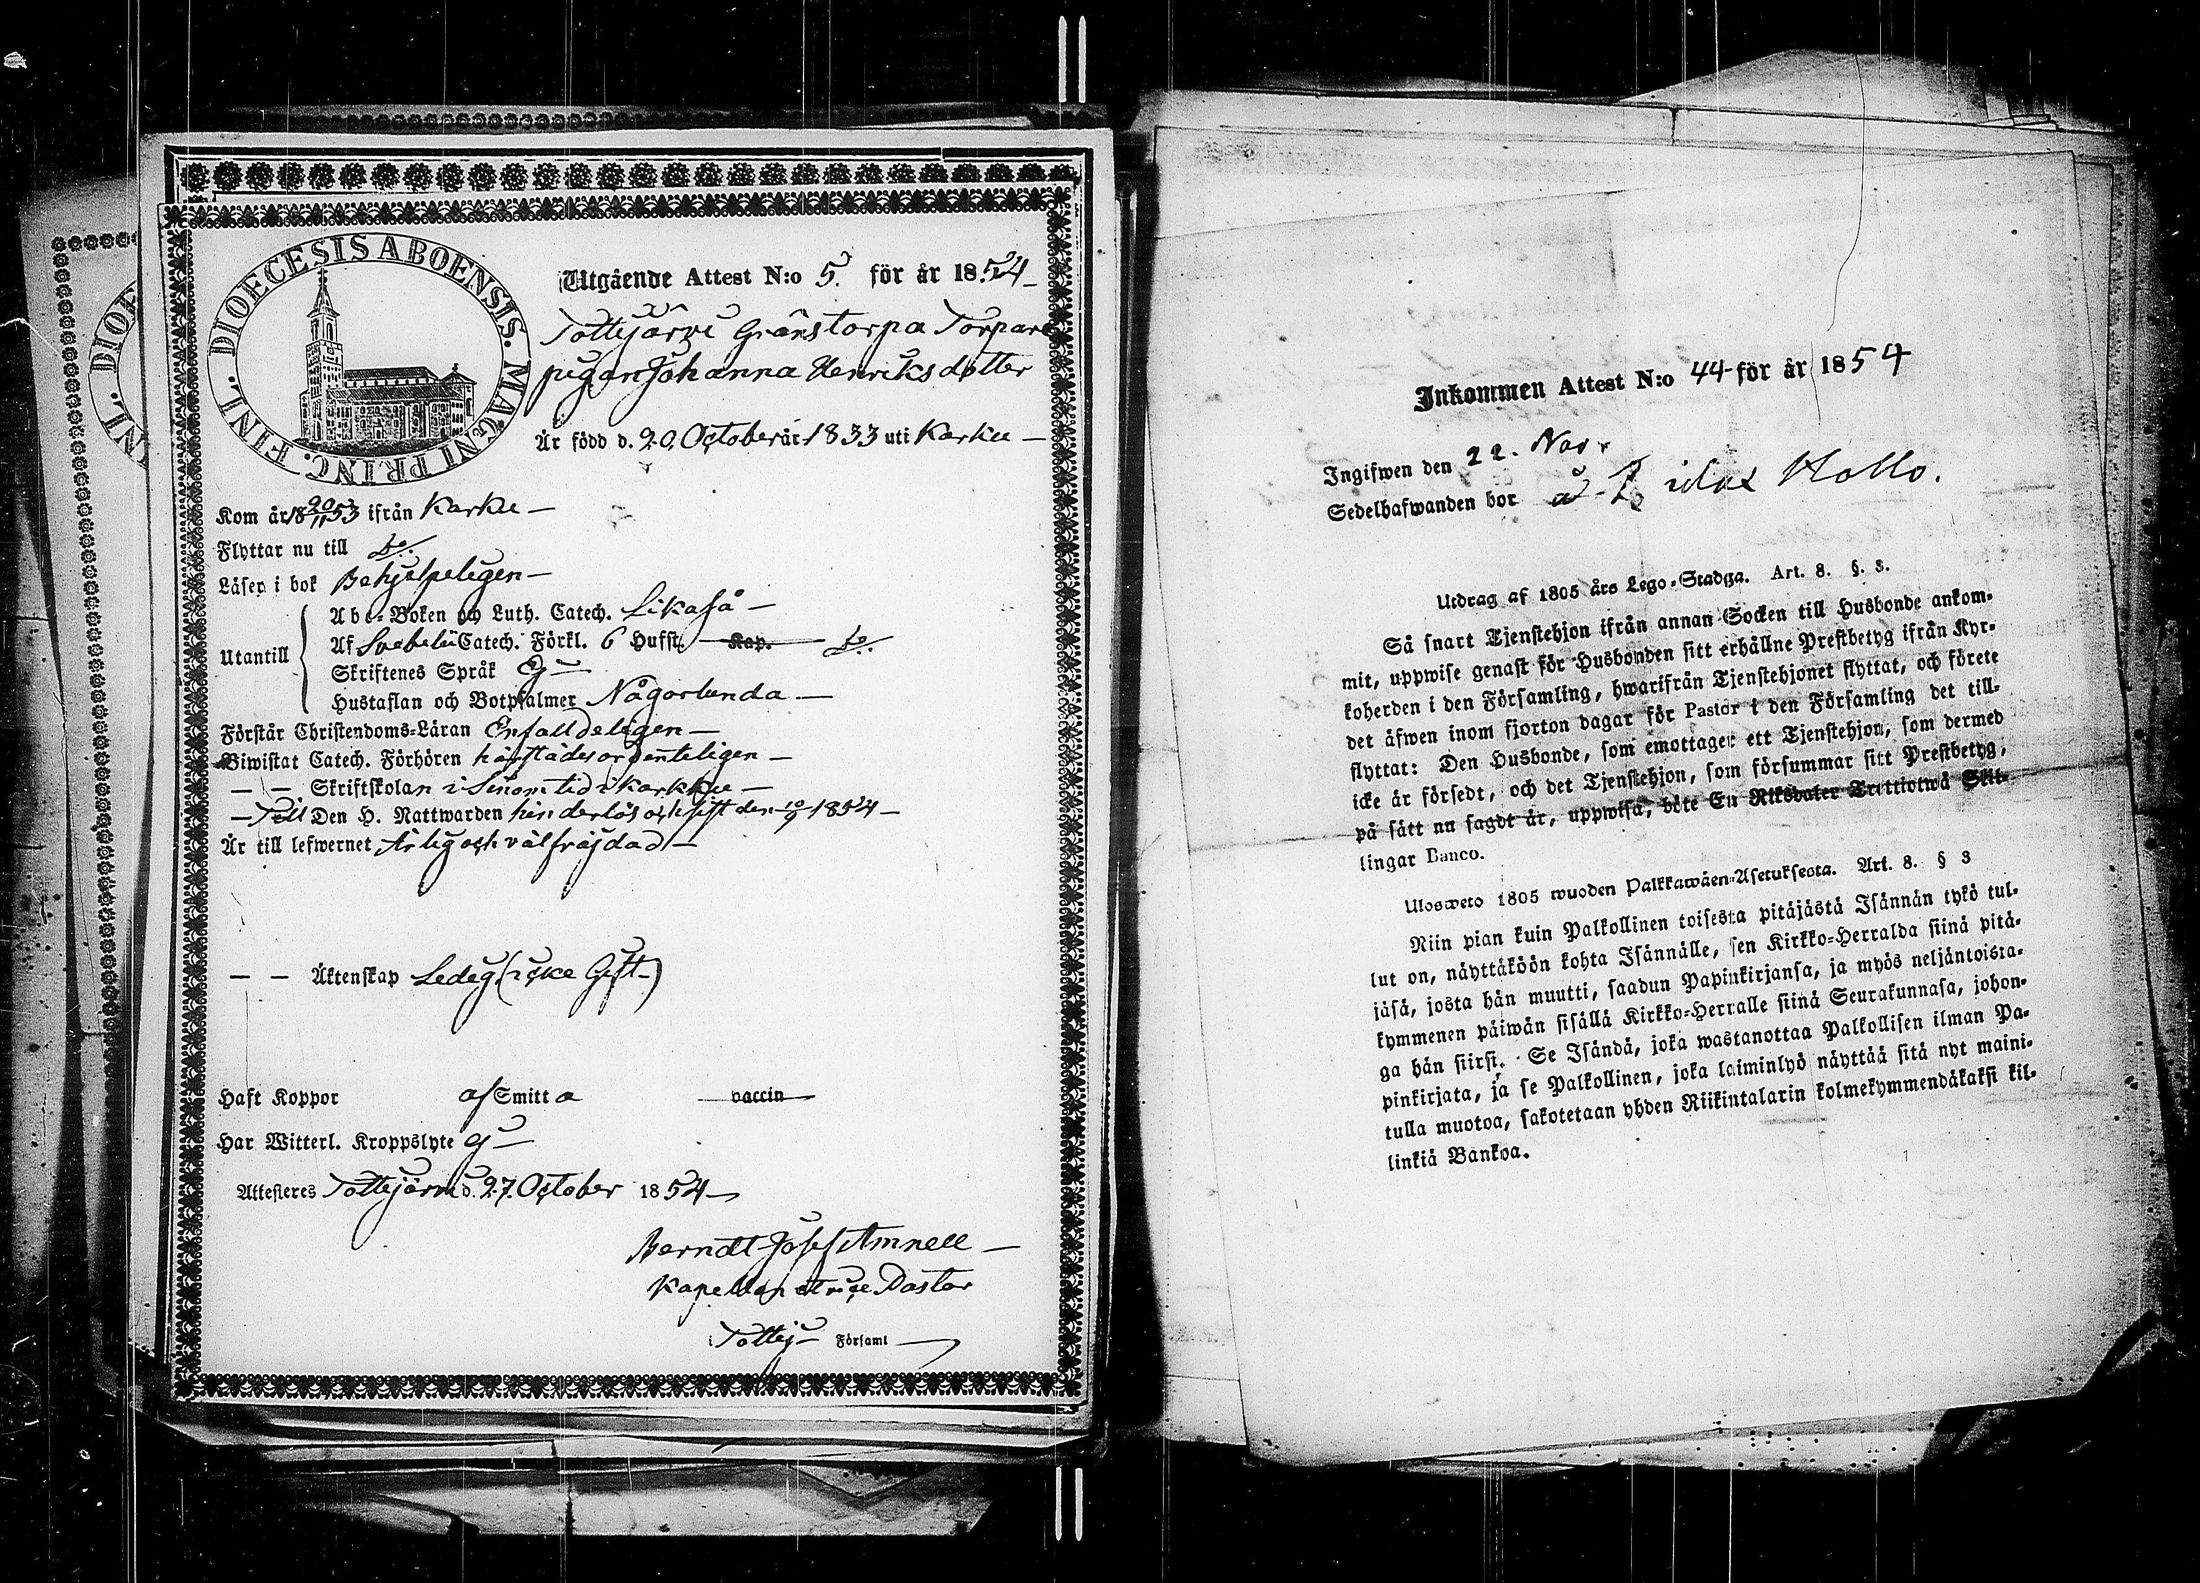 DIOECESIS ABOENSIS. MAGNI PRINC. FINL.
Utgående Attest N:o 5. för år 1854
Tottijärvi Gränstorpa Torpare
pigan Johanna Henriksdotter
Är född d. 20 October år 1833 uti Karkku
Kom år 18 20/11 53 ifrån Karkku
Flyttar nu till do.
Läser i bok Behjelpeligen
Utantill
Abc-Boken och Luth. Catech. Likaså
Af Svebelii Catech. Förkl. 6 Hufst. Kap. do.
Skriftenes Språk Ej
Hustaflan och Botpsalmer Någorlunda
Förstår Christendoms-Läran Enfalldeligen
Biwistat Catech. Förhören härstädes ordenteligen
— — Skriftskolan i Sinom tid i Karkku
— Till Den H. Nattwarden hinderlös och sist den 10/9 1854
Är till lefwernet Ärlig och välfräjdad
— — Äktenskap Ledig (icke Gift)
Haft Koppor af Smitta vaccin
Har Witterl. Kroppslyte Ej
Attesteres Tottijärvi d. 27. October 1854
Berndt Josef Amnell
Kapellan et vice Pastor
Tottij Församl
Inkommen Attest N:o 44 för år 1854
Ingifwen den 22. Nov.
Sedelhafwanden bor å Hollo.
Utdrag af 1805 års Lego-Stadga. Art. 8. §. 3.
Så snart Tjenstehjon ifrån annan Socken till Husbonde ankom-
mit, uppwise genast för Husbonden sitt erhållne Prestbetyg ifrån Kyr-
koherden i den Församling, hwarifrån Tjenstehjonet flyttat, och förete
det äfwen inom fjorton dagar för Pastor i den Församling det till-
flyttat: Den Husbonde, som emottager ett Tjenstehjon, som dermed
icke är försedt, och det Tjenstehjon, som försummar sitt Prestbetyg,
på sätt nu sagdt är, uppwisa, böte En Riksdaler Trettiotwå Skil-
lingar Banco.
Ulosweto 1805 wuoden Palkkawäen-Asetuksesta. Art. 8. § 3
Niin pian kuin Palkollinen toisesta pitäjästä Isännän tykö tul-
lut on, näyttäköön kohta Isännälle, sen Kirkko-Herralda siinä pitä-
jäsä, josta hän muutti, saadun Papinkirjansa, ja myös neljäntoista-
kymmenen päiwän sisällä Kirkko-Herralle siinä Seurakunnasa, johon-
ga hän siirsi. Se Isändä, joka wastanottaa Palkollisen ilman Pa-
pinkirjata, ja se Palkollinen, joka laiminlyö näyttää sitä nyt maini-
tulla muotoa, sakotetaan yhden Riikintalarin kolmekymmendäkaksi kil-
linkiä Bankoa.